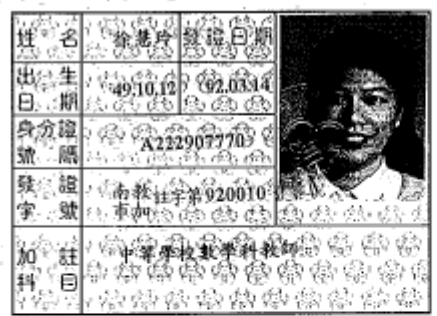 姓名 徐慧玲 發證日期
出生日期 49.10.12 92.03.14
身分證號碼 A222907770
發證字號 南市教加註字第920010
加註科目 中等學校數學科教師